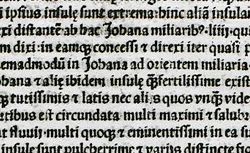 ipſius inſulę ſunt extrema: hinc aliā inſulā
exi diſtantē ab hac Johana miliarib⁹. liiij. q
m dixi: in eamq̃ conceſſi & direxi iter quaſi p
emadmodū in Johana ad orientem miliaria
ohana & alię ibidem inſulę q̃fertiliſſime exiſt
tutiſſimis & latis nec alijs quos vnq̃ videri
rtibus eſt circundata: multi maximi & ſalubr
uunt fluuij: multi quoq̃ & eminentiſſimi in ea
ſunt pulcerrime & diſtincte fi